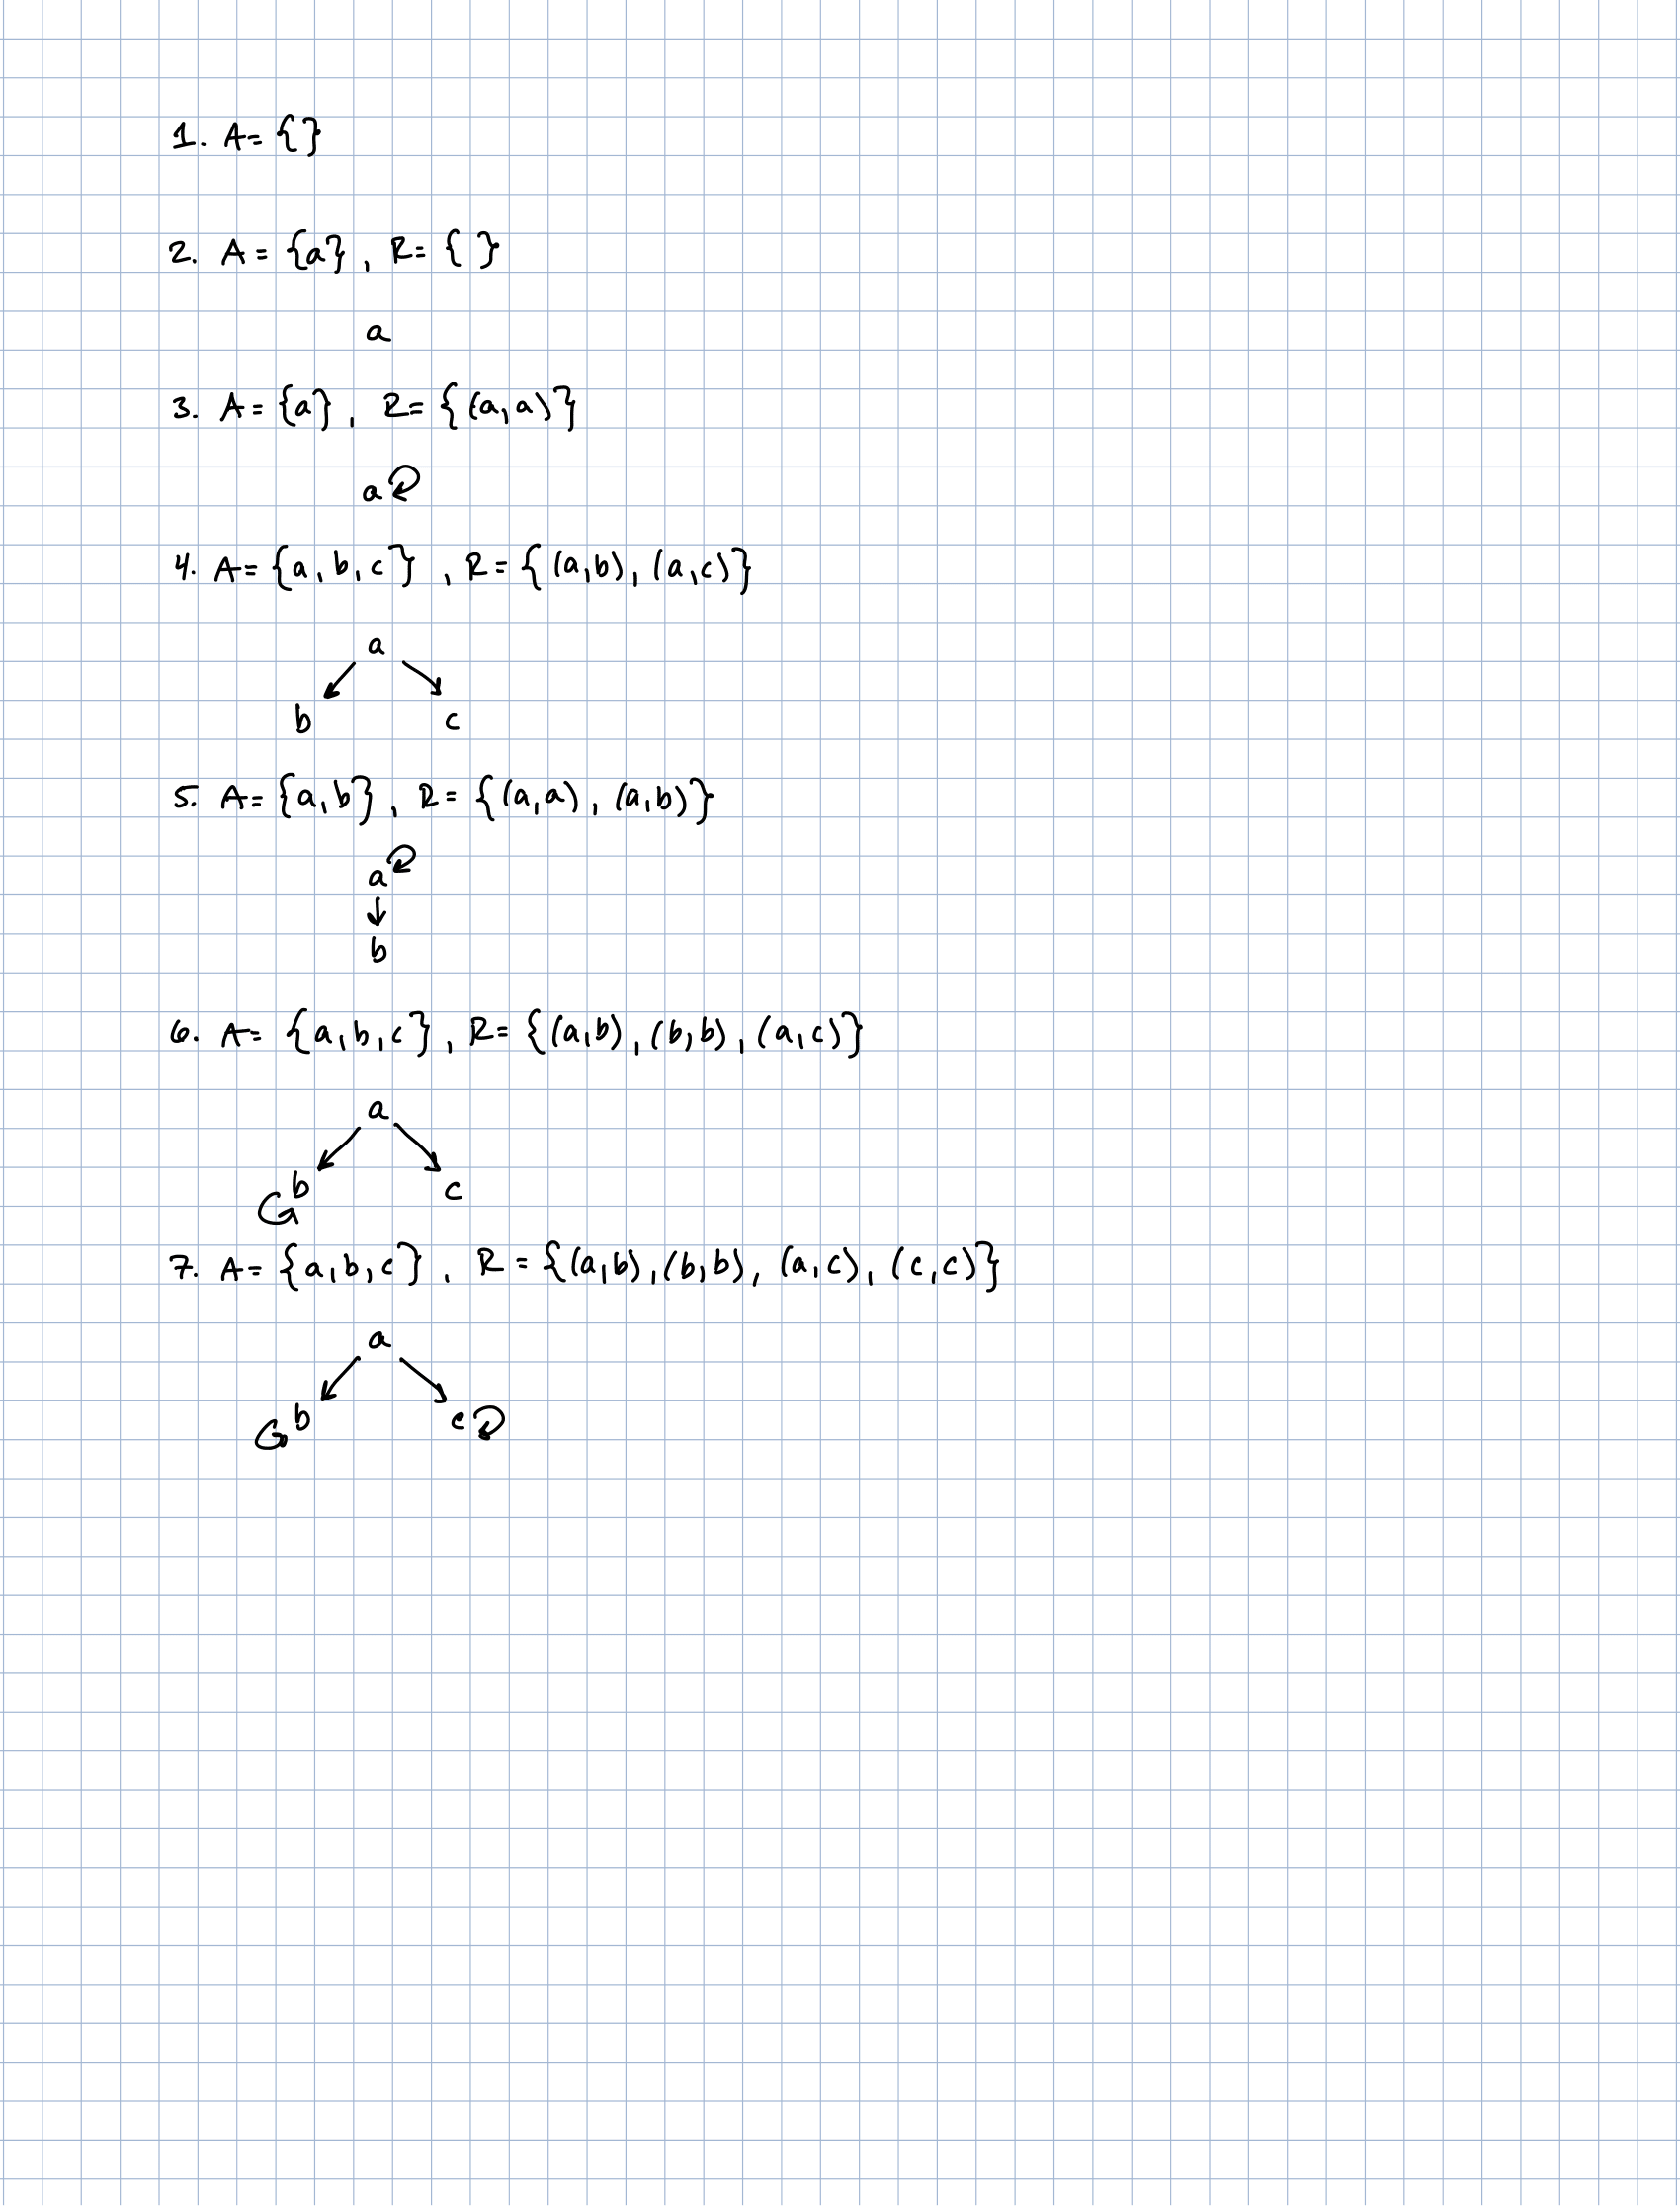 1. A= {}
2. A = {a}, R= { }
a
3. A= {a}, R= {(a,a)}
a
4. A= {a,b,c}, R= {(a,b), (a,c)}
a
b c
5. A= {a,b}, R= {(a,a), (a,b)}
a
b
6. A= {a,b,c}, R= {(a,b), (b,b), (a,c)}
a
b c
7. A= {a,b,c}, R = {(a,b), (b,b), (a,c), (c,c)}
a
b c